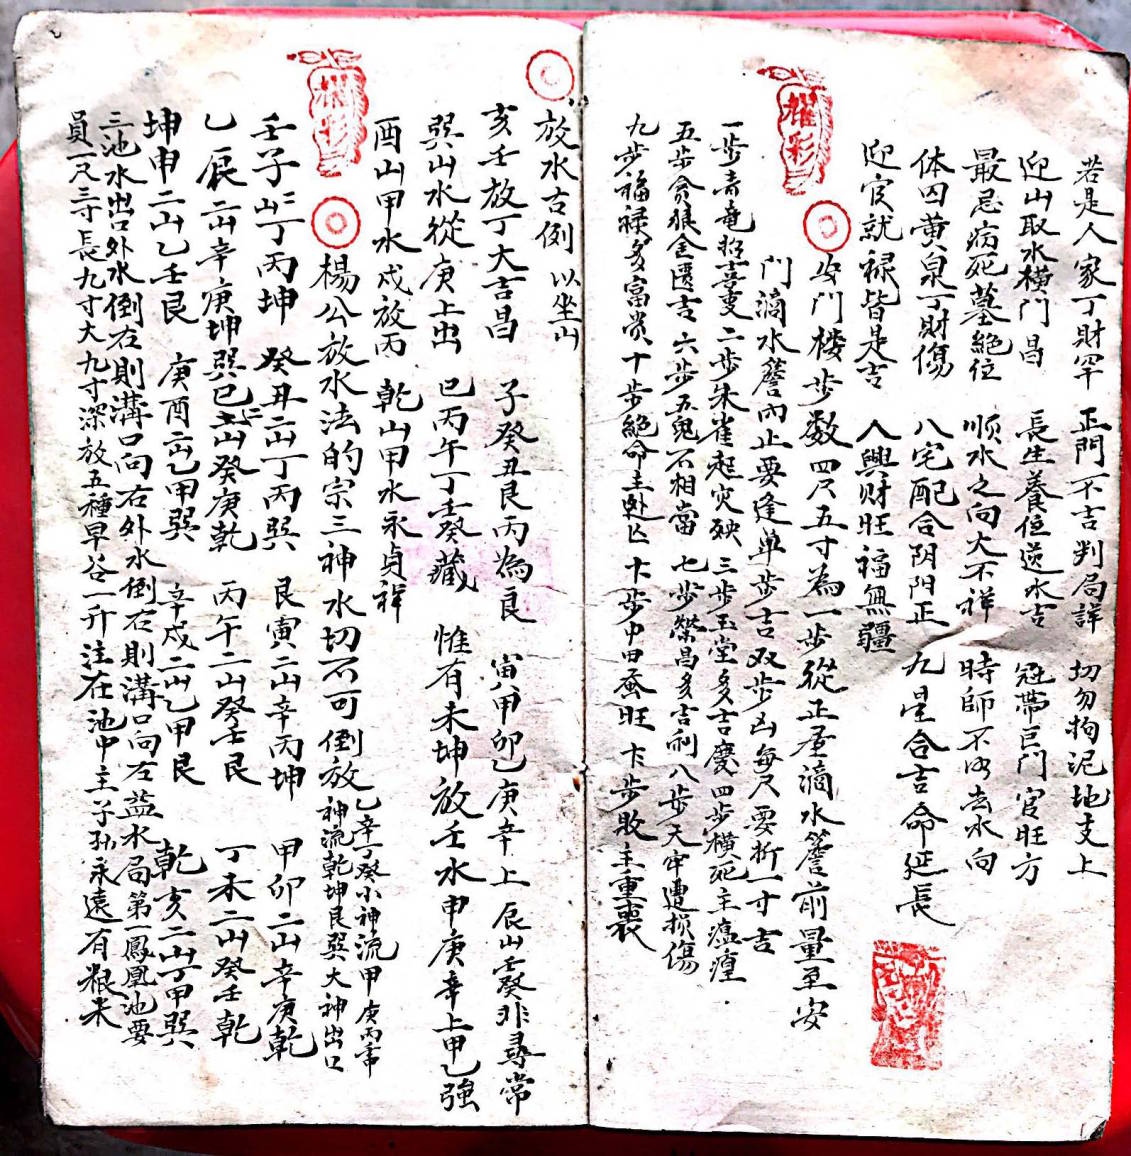 若是人家丁財罕 正門不吉判局詳 切勿拘泥地支上
迎山取水橫門昌 長生養位送水吉 冠帶巨門官旺方
最忌病死墓絕位 順水之向大不祥 時師不消去水向
体囚黄泉丁財傷 八宅配合阴阳正 九星合吉命延長
迎官就禄皆是吉 人興财旺福無疆
安門楼步数四尺五寸為一步從正屋滴水簷前量至安
門滴水簷内止要逢单步吉双步凶每尺要折一寸吉
一步青竜招喜事 二步朱雀起灾殃 三步玉堂多吉慶 四步橫死主瘟瘟
五步贪狼金匮吉 六步五鬼不相當 七步榮昌多吉利 八步天牢遭损傷
九步福禄多富贵 十步絕命主 亡 十步中田蚕旺 十步敗主重喪
耀彩
放水古例 以坐山
亥壬放丁大吉昌 子癸丑艮丙為良 寅甲卯乙庚辛上 辰山壬癸非尋常
巽山水從庚上出 巳丙午丁壬癸藏 惟有未坤放壬水 申庚辛上甲乙強
酉山甲水戍放丙 乾山甲水永貞祥
耀彩
楊公放水法的宗三神水切不可倒放 乙辛丁癸小神流甲庚丙壬中神流乾坤艮巽大神出口
壬子二山丁丙坤 癸丑二山丁丙巽 艮寅二山辛丙坤 甲卯二山辛庚乾
乙辰二山辛庚坤 巽巳二山癸庚乾 丙午二山癸壬艮 丁未二山癸壬乾
坤申二山乙壬艮 庚酉二山乙甲巽 辛戍二山乙甲艮 乾亥二山丁甲巽
三池水出口外水倒左則溝口向右外水倒右則溝口向左益水局第一鳳凰池要
員一尺三寸長九寸大九寸深放五種早谷一升注在池中主子孙永遠有粮米